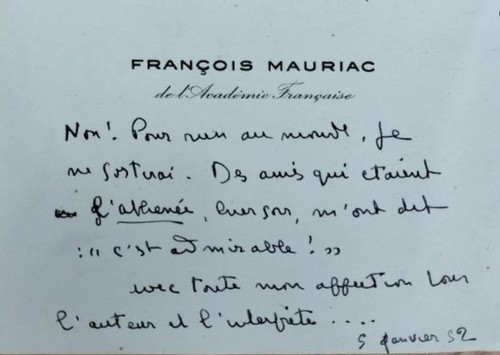 FRANÇOIS MAURIAC
de l'Académie Française
Non! Pour rien au monde, je
ne sortirai. Des amis qui étaient
à l'athénée, hier soir, m'ont dit
: "c'est admirable!"
avec toute mon affection pour
l'auteur et l'interprète....
5 janvier 52